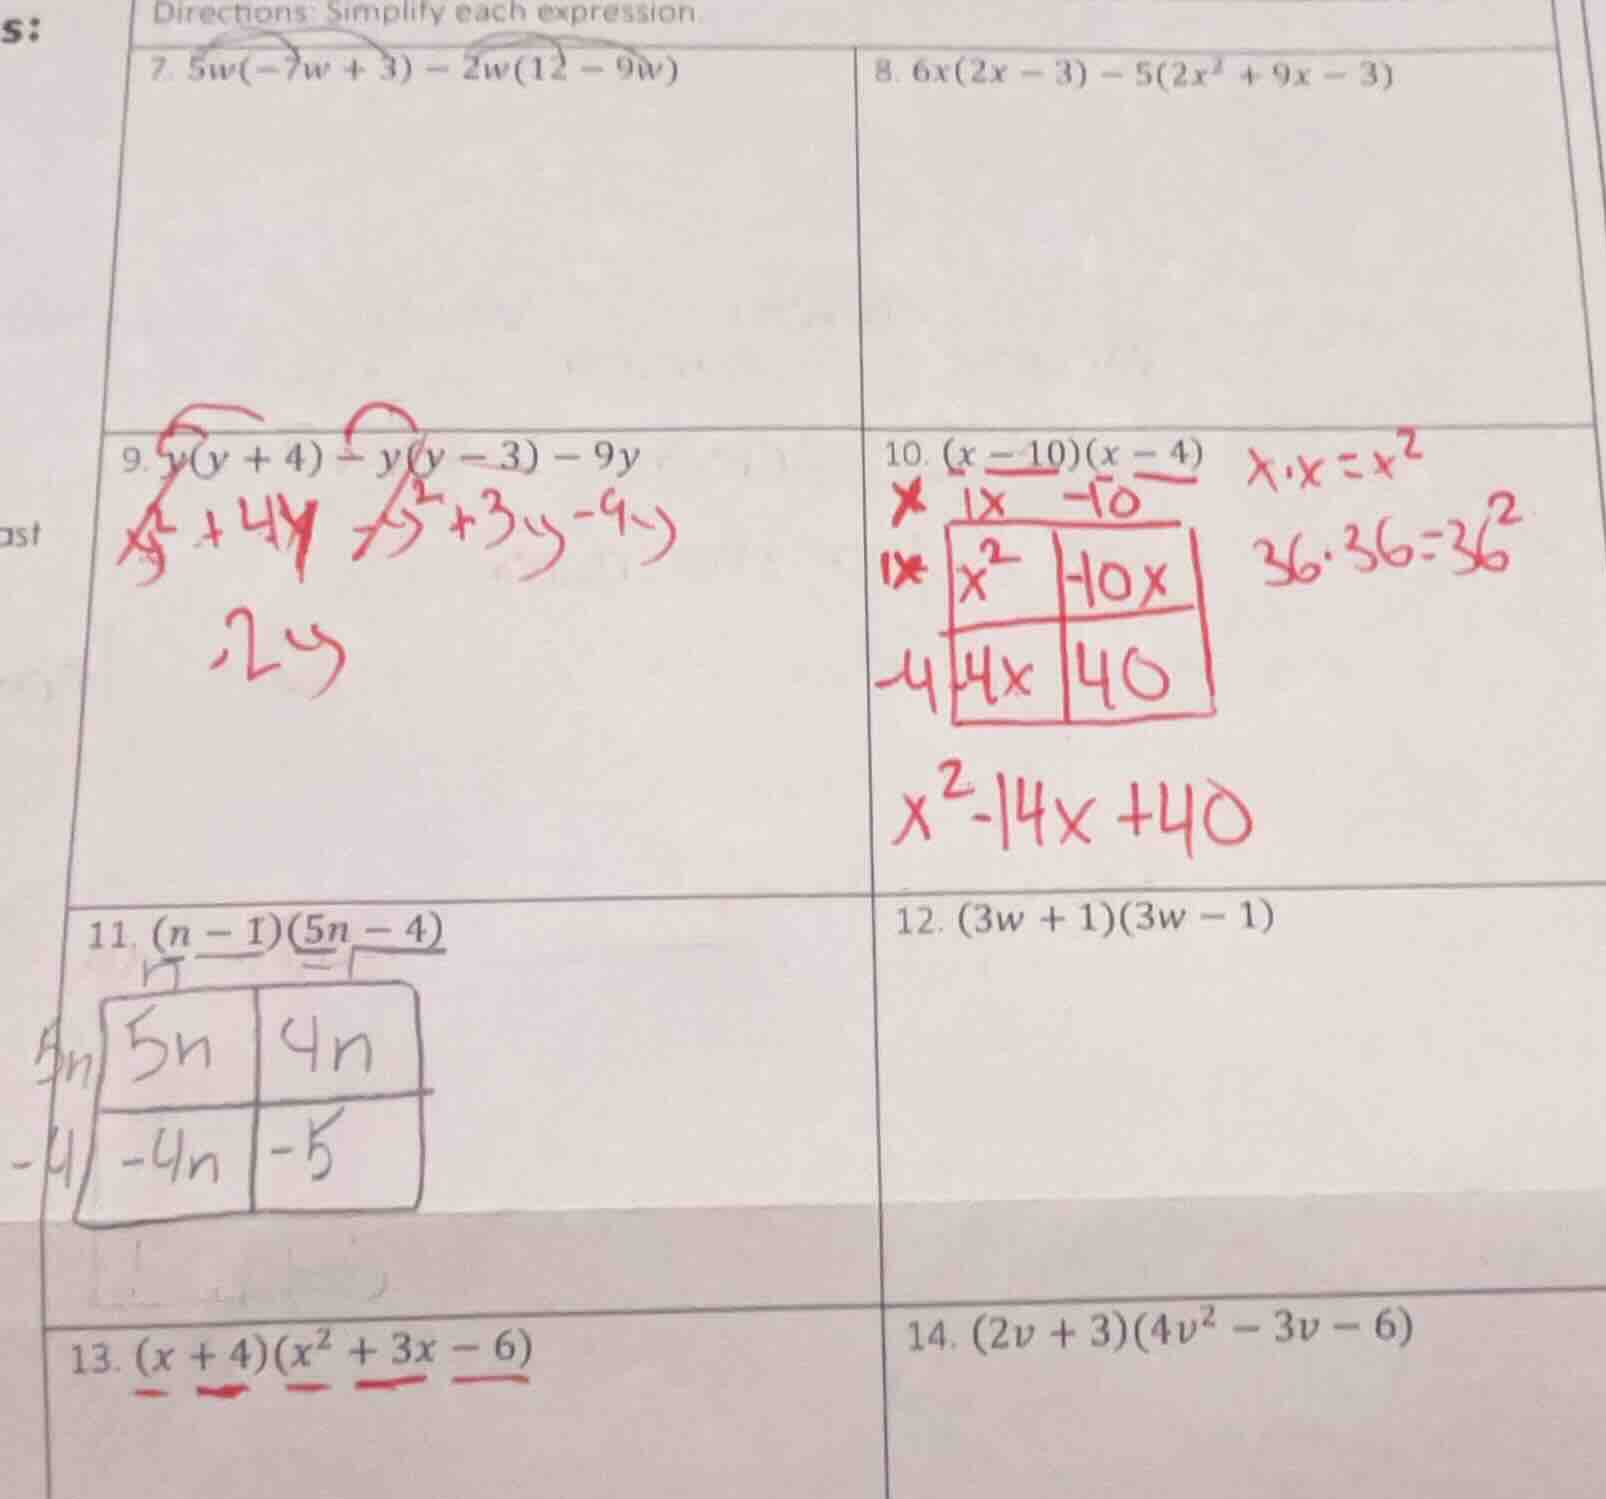 s:
Directions: Simplify each expression.
7. 5w(−7w + 3) − 2w(12 − 9w)
8. 6x(2x − 3) − 5(2x² + 9x − 3)
9. y(y + 4) − y(y − 3) − 9y
y² + 4y - y² + 3y - 9y
-2y
10. (x − 10)(x − 4)
x·x = x²
36·36=36²
x 1x -10
1x x² -10x
-4 -4x 40
x² -14x +40
ast
11. (n − 1)(5n − 4)
n
5n 5n 4n
-4 -4n -5
12. (3w + 1)(3w − 1)
13. (x + 4)(x² + 3x − 6)
14. (2v + 3)(4v² − 3v − 6)